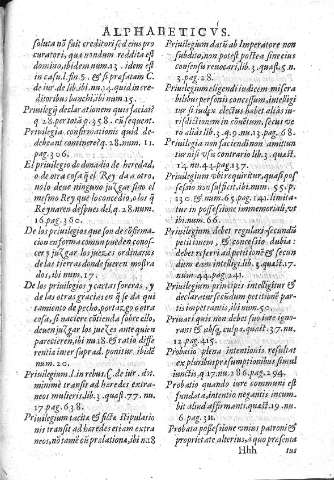 ALPHABETICVS.
soluta nõ fuit creditori sed eius pro
curatori, quia nondum reddita est
domino, ibidem num. 13. idem est
in casu l. fin. §. & si præfatam C.
de iur. de lib. ibi. nu. 14. quid in cre-
ditoribus hæc tit. ibi num 15.
Privilegij declarationem quis faciat
q 28. per totã p 358. cũ sequent.
Privilegia confirmationis quid de-
beant continere q. 28. num. 11.
pag. 306.
El privilegio de donadio de heredad,
o de otra cosa q̃ el Rey da a otro,
nolo deve ninguno juzgar sino el
mesmo Rey que lo concedio, o los q̃
Reynarẽ despues del, q. 28. num.
16 pag. 360.
De los privilegios que son de cõfirma-
cion en forma comun pueden conos-
cer y juzgar los juezes ordinarios
de las tierras donde fueren mostra
dos, ibi num. 17.
De los privilegios y cartas foreras, y
de las otras gracias en q̃ se da qui
tamiento de pecho, portazgo o otra
cosa, si nasciere cõtienda sobre ello,
deven juzgar los juezes ante quien
parecieren, ibi nu. 18. & ratio diffe
rentiæ inter suprad. ponitur. ibidẽ
num. 20.
Privilegium. l. in rebus. C. de iur. dot.
minimè transit ad hæredes extra-
neos mulieris. lib. 3. quæst. 77. nu.
17 pag. 638.
Privilegium tacitæ & fictæ stipulatio
nis transit ad hæredes etiam extra
neos, nõ tamẽ cũ prælatione, ibi n. 28
Privilegium datũ ab Imperatore non
subdito, non potest postea sine eius
consensu revocari, lib. 3. quæst. 5. n.
3. pag. 28.
Privilegium eligendi iudicem misera
bilibus personis concessum, intelligi
tur si iudex electus habet aliàs iu-
risdictionem in conventum, secus ve
rò aliàs lib. 3. q. 9. nu. 13. pag. 68.
Privilegia non faciendum amittun
tur nisi q̃s usu contrario lib. 3. quæst.
14. nu. 44. pag. 137.
Privilegium ubi requiritur, quasi pos
sessio non sufficit, ibi num. 55. p.
130. & num. 65. pag. 141. limita-
tur in possessione immemoriali, vt
ibi num. 66.
Privilegium debet regulari secundũ
petitionem, & concessio dubia:
debet referri ad petitionẽ & secun
dum eam intelligi. lib. 3. quæst. 17.
num. 44. pag. 241.
Privilegium principis intelligitur &
declaratur secundum petitionẽ par-
tis impetrantis, ibi num. 50.
Privatus quis non debet suo iure igno-
rans & absq; culpa, quæst. 37. nu.
12. pag. 415.
Probatio plena intentionis resultat
ex pluribus præsumptionibus simul
iunctis, q. 17. nu. 286. pag. 294.
Probatio quando iure communi est
fundata, intentio negantis incum-
bit aliud affirmanti. quæst. 19. nu.
6. pag. 311.
Probata possessione unius patroni &
proprietate alterius, a quo præsenta
Hhh tus